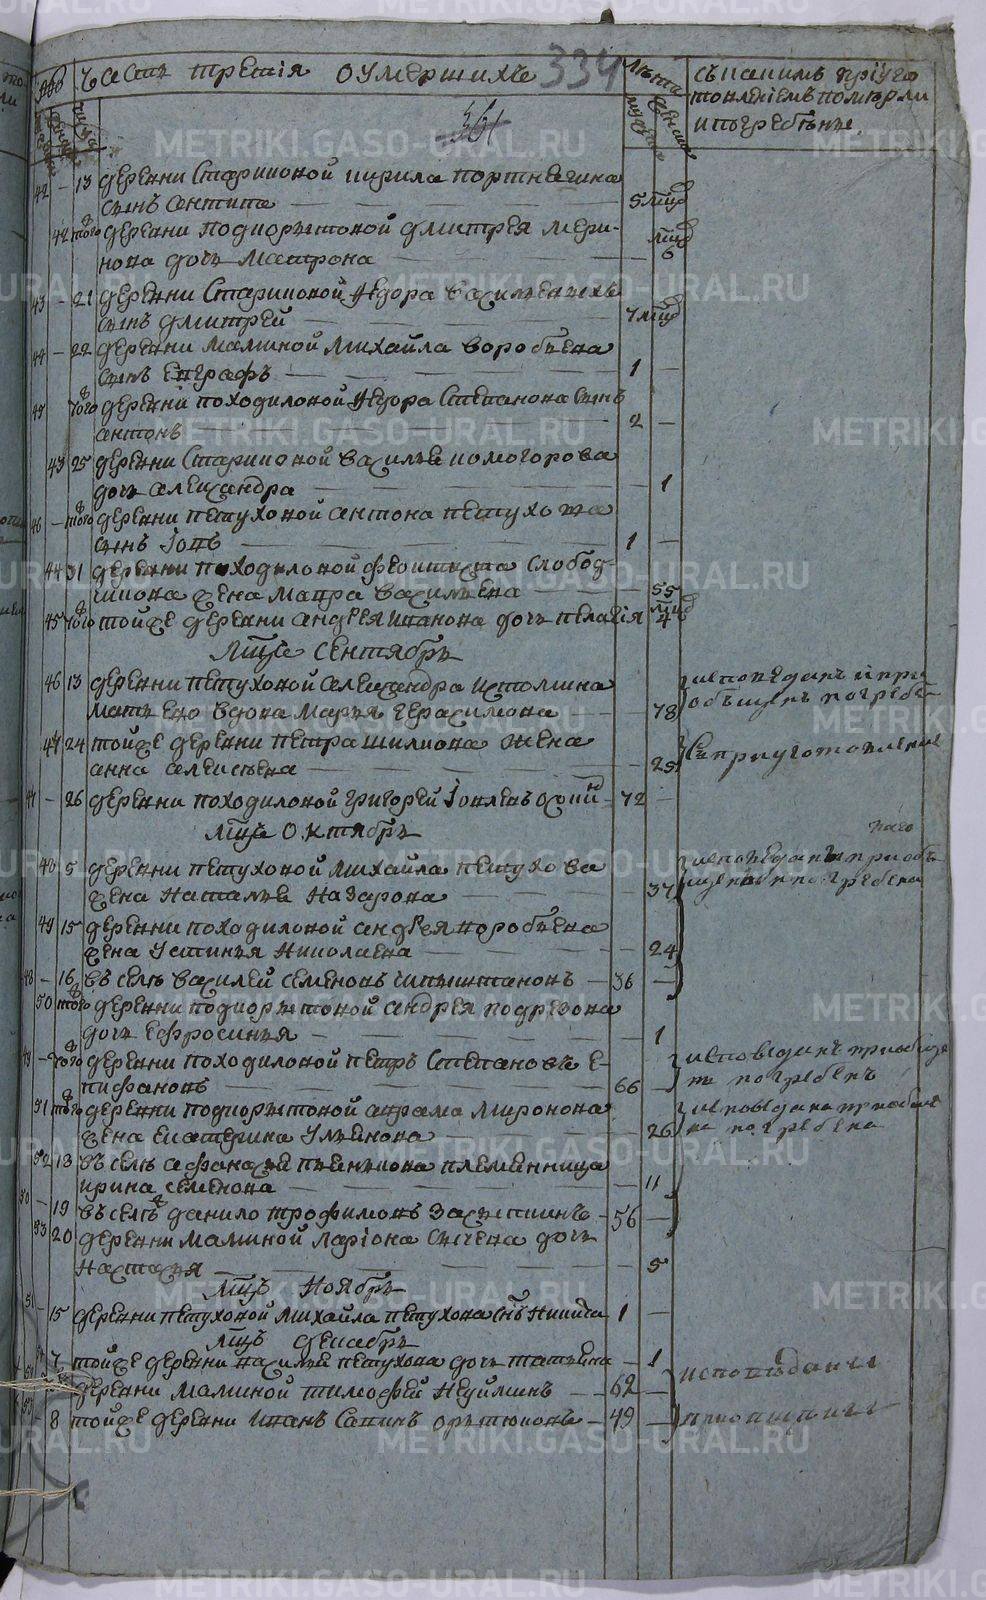 Часть третія о умершихъ 334
лѣта
съ какимъ приуго
товленіемъ померли
и погребены
361
42 - 13 деревни Стариковой кирила портнягина
сынъ никита 5 мцъ
42 того деревни подкорытовой дмитрея мери-
нова дочь матрона мцъ 6
43 - 21 деревни Стариковой Федора васильевыхъ
сынъ дмитрей 7 мцъ
44 - 22 деревни малиной михайла воробьева
сынъ Евграфъ 1 -
45 того деревни походиловой Федора Степанова сынъ
антонъ 2 -
43 25 деревни Стариковой василья комогорова
дочь александра 1
46 - того деревни петуховой антона петухова
сынъ Іовъ 1 -
44 31 деревни походиловой феоктиста слобод-
чикова жена мавра васильева 55
45 того тойже деревни андрея иванова дочь пелагія 4 мцъ
мцъ Сентябрь
46 13 деревни петуховой александра истомина
мать ево вдова марья герасимова 78 исповѣданъ и при
общенъ погребенъ
47 24 тойже деревни петра шилкова жена
анна алексѣева 25 Съ приуготовленіе
47 - 26 деревни походиловой григорей Іовлевъ 72 -
мцъ Октябрь
48 5 деревни петуховой михайла петухова
жена наталья назарова 37 исповѣдана приоб
щена и погребена
49 15 деревни походиловой андрея воробьева
жена устинья николаева 24
48 - 16 въ селѣ василей семеновъ 36 -
50 того деревни подкорытовой андрея подрезова
дочь ефросинья 1
49 - того деревни походиловой петръ степановъ е-
пифановъ 66 исповѣданъ приобще
погребенъ
51 того деревни подкорытовой аврама миронова
жена екатерина ульянова 26 исповѣдана приобще
на погребена
52 13 въ селѣ афанасья племянница
ирина семенова 11
50 - 19 въ селѣ данило трофимовъ 56 -
53 20 деревни малиной ларіона сысчева дочь
настасья 5
мцъ Ноябрь
51 - 15 деревни петуховой михайла петухова сынъ никита 1 -
мцъ декабрь
7 тойже деревни василья петухова дочь татьяна - 1
деревни малиной тимофей неуйминъ 62 - исповѣданы
8 тойже деревни иванъ савинъ 49 -
METRIKI.GASO-URAL.RU